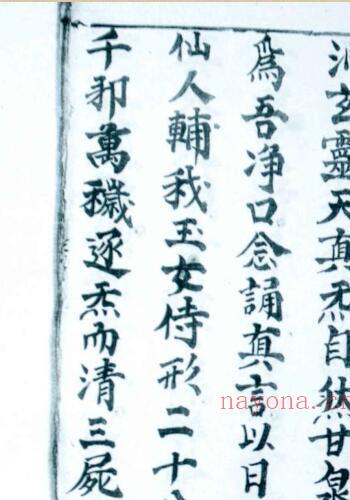 玄靈天真炁自然甘泉
為吾淨口念誦真言以日
仙人輔我玉女侍形二十八
千邪萬穢逐炁而清三屍
nayona.cn